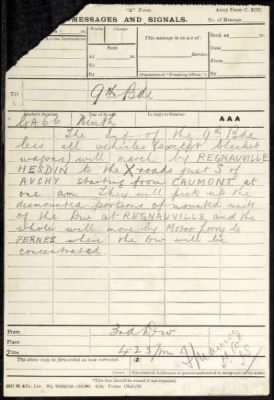 "A" Form.
Army Form C. 2121.
MESSAGES AND SIGNALS.
No. of Message
Words
Charge
This message is on a/c of:
Recd. at
Sent
Date
At
Service.
From
To
By
By
(Signature of "Franking Officer.")
TO
9th Bde
Sender's Number
Day of Month
In reply to Number
AAA
GA66
Ninth
The Inf. of the 9th Bde
less all vehicles (except blanket
wagons) will march by REGNAUVILLE
HESDIN to the X roads just S of
AUCHY starting from CAUMONT at
one am. They will pick up the
dismounted portions of mounted units
of the Div at REGNAUVILLE and the
whole will move by Motor Lorry to
PERNES where the Div will be
concentrated.
From
3rd Div
Place
Time
4.25 pm
The above may be forwarded as now corrected.
(Z)
* This line should be erased if not required.